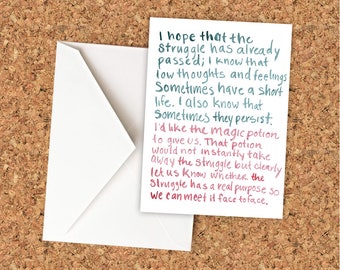 I hope that the
struggle has already
passed; I know that
low thoughts and feelings
sometimes have a short
life. I also know that
sometimes they persist.
I'd like the magic potion
to give us. That potion
would not instantly take
away the struggle but clearly
let us know whether the
struggle has a real purpose so
we can meet it face to face.